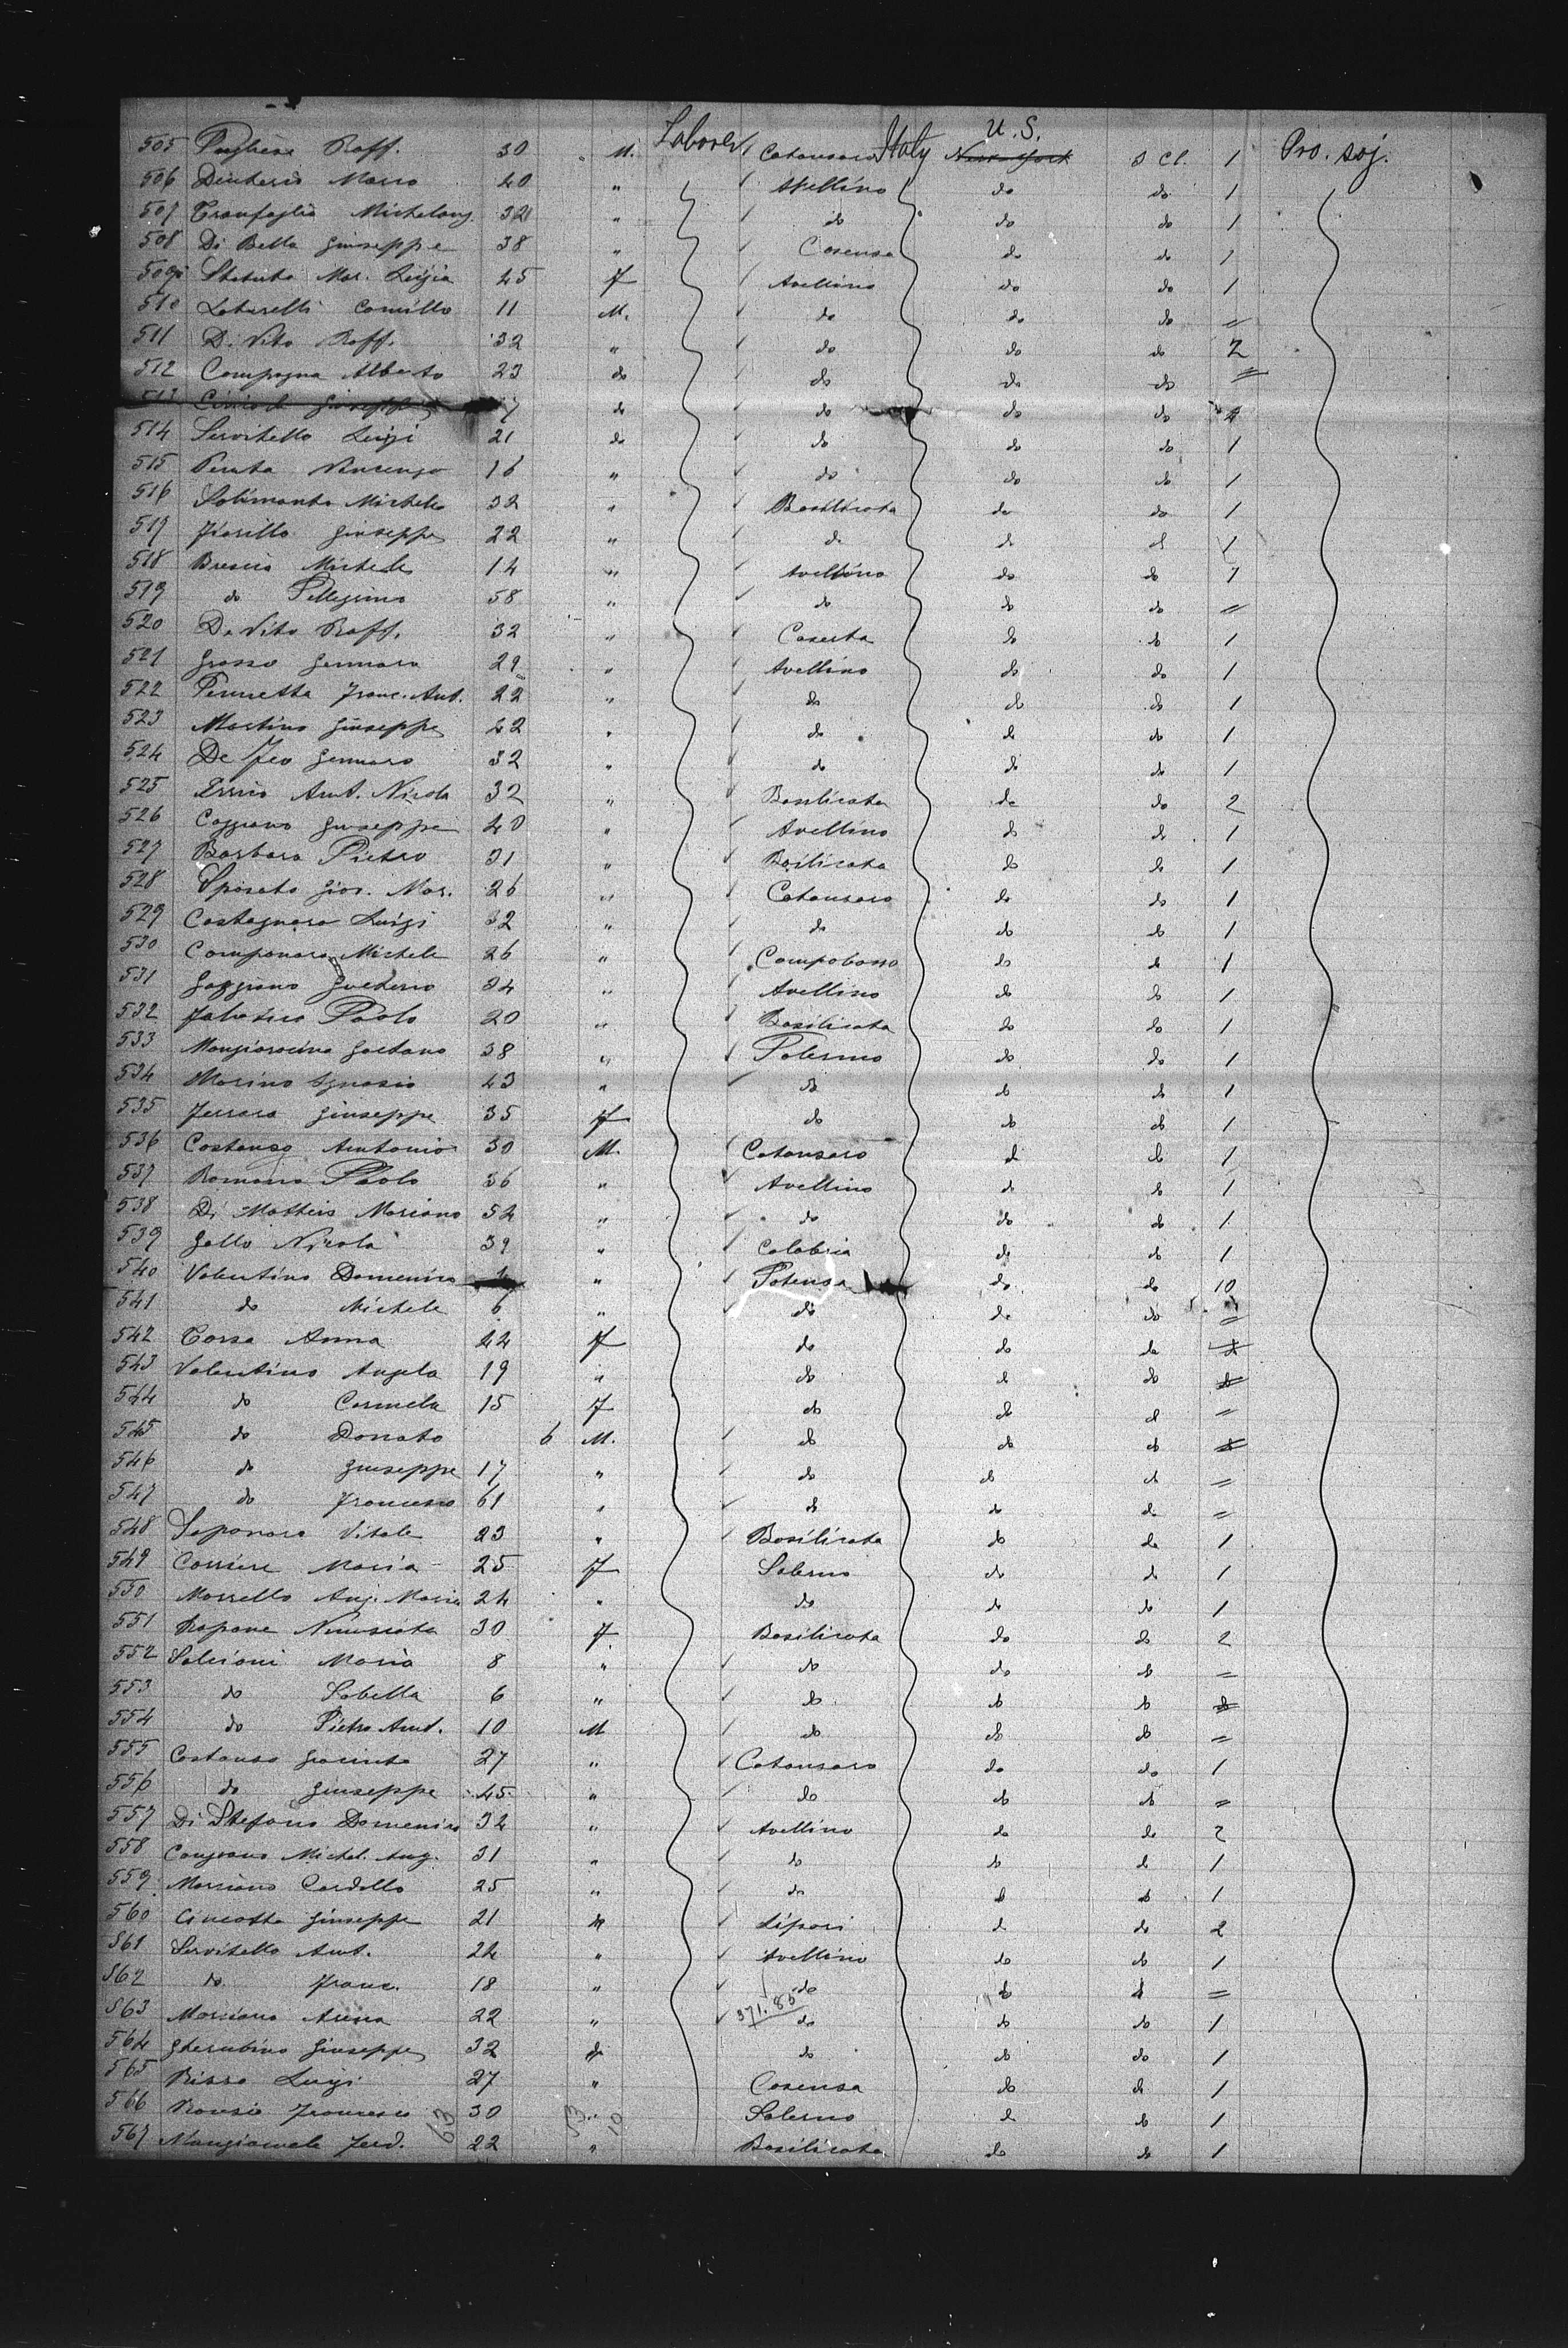 505 Pugliese Raff. 30 M. Laborer Catansaro Italy U. S. New-York 3 Cl. 1 Pro. soj.
506 Marco 40 " Avellino do do 1
507 Tranfaglia Michelang. 32 " do do do 1
508 Di Bella Giuseppe 38 " Cosensa do do 1
509 Statuto Mar. Luigia 45 F Avellino do do 1
510 Camillo 11 M. do do do =
511 Di Vito Raff. 32 " do do do 2
512 Campagna Alberto 23 do do do do =
513 Giuseppe 7 do do do do
514 Servitello Luigi 21 do do do do 1
515 Vincenzo 16 " do do do 1
516 Solimanto Michele 32 " Basilicata do do 1
517 Fiorillo Giuseppe 22 " do do do 1
518 Brescia Michele 14 " Avellino do do 1
519 do Pellegrino 58 " do do do =
520 De Vito Raff. 32 " Caserta do do 1
521 Grasso Gennaro 29 " Avellino do do 1
522 Perretta Franc. Ant. 22 " do do do 1
523 Martino Giuseppe 42 " do do do 1
524 De Feo Gennaro 32 " do do do 1
525 Errico Ant. Nicola 32 " Basilicata do do 2
526 Caggiano Giuseppe 40 " Avellino do do 1
527 Barbaro Pietro 31 " Basilicata do do 1
528 Sposato Giov. Mar. 26 " Catansaro do do 1
529 Castagnaro Luigi 32 " do do do 1
530 Campanaro Michele 26 " Campobasso do do 1
531 Gaggiano 34 " Avellino do do 1
532 Paolo 20 " Basilicata do do 1
533 Mangiaracina Gaetano 38 " Palermo do do 1
534 Marino Ignazio 43 " do do do 1
535 Ferrara Giuseppe 35 F do do do 1
536 Costanzo Antonio 30 M. Catansaro do do 1
537 Romano Paolo 36 " Avellino do do 1
538 Di Mattheis Mariano 54 " do do do 1
539 Gallo Nicola 39 " Calabria do do 1
540 Valentino Domenico " Potensa do do 10
541 do Michele 6 " do do do =
542 Corsa Anna 44 F do do do
543 Valentino Angela 19 " do do do
544 do Carmela 15 F do do do =
545 do Donato 6 M. do do do
546 do Giuseppe 17 " do do do =
547 do Francesco 61 " do do do =
548 Saponara Vitale 23 " Basilicata do do 1
549 Corriere Maria 25 F Salerno do do 1
550 Morrello Ang. Maria 24 " do do do 1
551 Rapone Nunziata 30 F. Basilicata do do 2
552 Salcioni Maria 8 " do do do =
553 do Sabella 6 " do do do
554 do Pietro Ant. 10 M do do do =
555 Costanso Giacinto 27 " Catansaro do do 1
556 do Giuseppe 45 " do do do =
557 Di Stefano Domenico 32 " Avellino do do 2
558 Cangiano Michel. Ang. 31 " do do do 1
559 Marciano Cardello 25 " do do do 1
560 Cincotta Giuseppe 21 Lipari do do 2
561 Servitello Ant. 24 " Avellino do do 1
562 do Franc. 18 " do do do =
371.85
563 Marciano 22 " do do do 1
564 Gherubino Giuseppe 32 do do do 1
565 Risso Luigi 27 " Cosensa do do 1
566 Francesco 30 " Salerno do do 1
63 53 10
567 Mangiamele Ferd. 22 " Basilicata do do 1